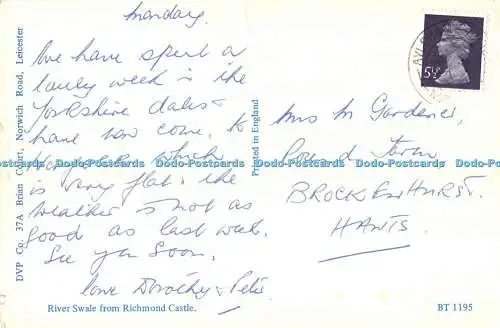 Monday.
We have spent a
lovely week in the
Yorkshire dales &
have now come to
which
is very flat & the
weather is not as
good as last week.
See you soon.
love Dorothy & Pete.
Mrs M Gardener,
BROCKENHURST.
HANTS.
5½P
DVP Co. 37A Brian Court, Norwich Road, Leicester
Printed in England
Dodo Postcards Dodo Postcards Dodo Postcards Dodo Postcards Dodo Postcards
River Swale from Richmond Castle.
BT 1195